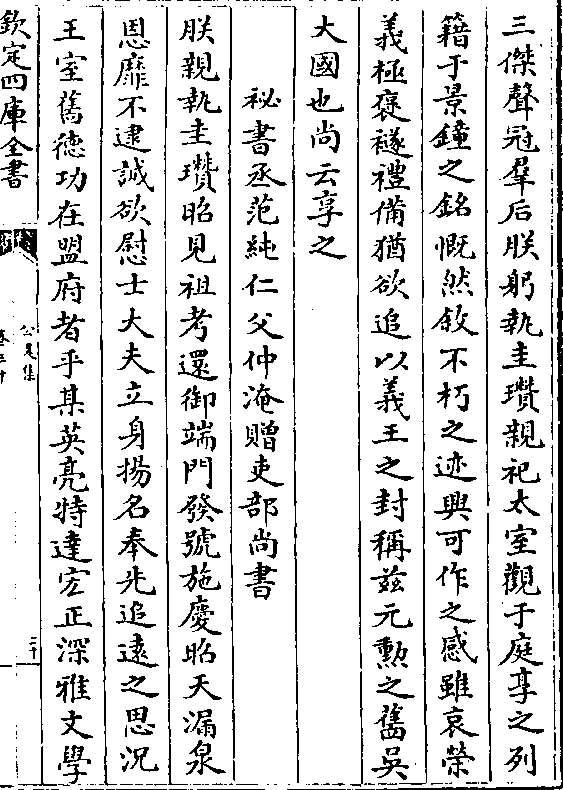 三傑聲冠羣后朕躬執圭瓚親祀太室觀于庭享之列
籍于景鐘之銘慨然敘不朽之迹興可作之感雖哀榮
義極褒禭禮備猶欲追以義王之封稱兹元勲之舊吳
大國也尚云享之
祕書丞范純仁父仲淹贈吏部尚書
朕親執圭瓚昭見祖考還御端門發號施慶昭天漏泉
恩靡不逮誠欲慰士大夫立身揚名奉先追遠之思況
王室舊德功在盟府者乎某英亮特達宏正深雅文學
欽定四庫全書
公是集
卷三十